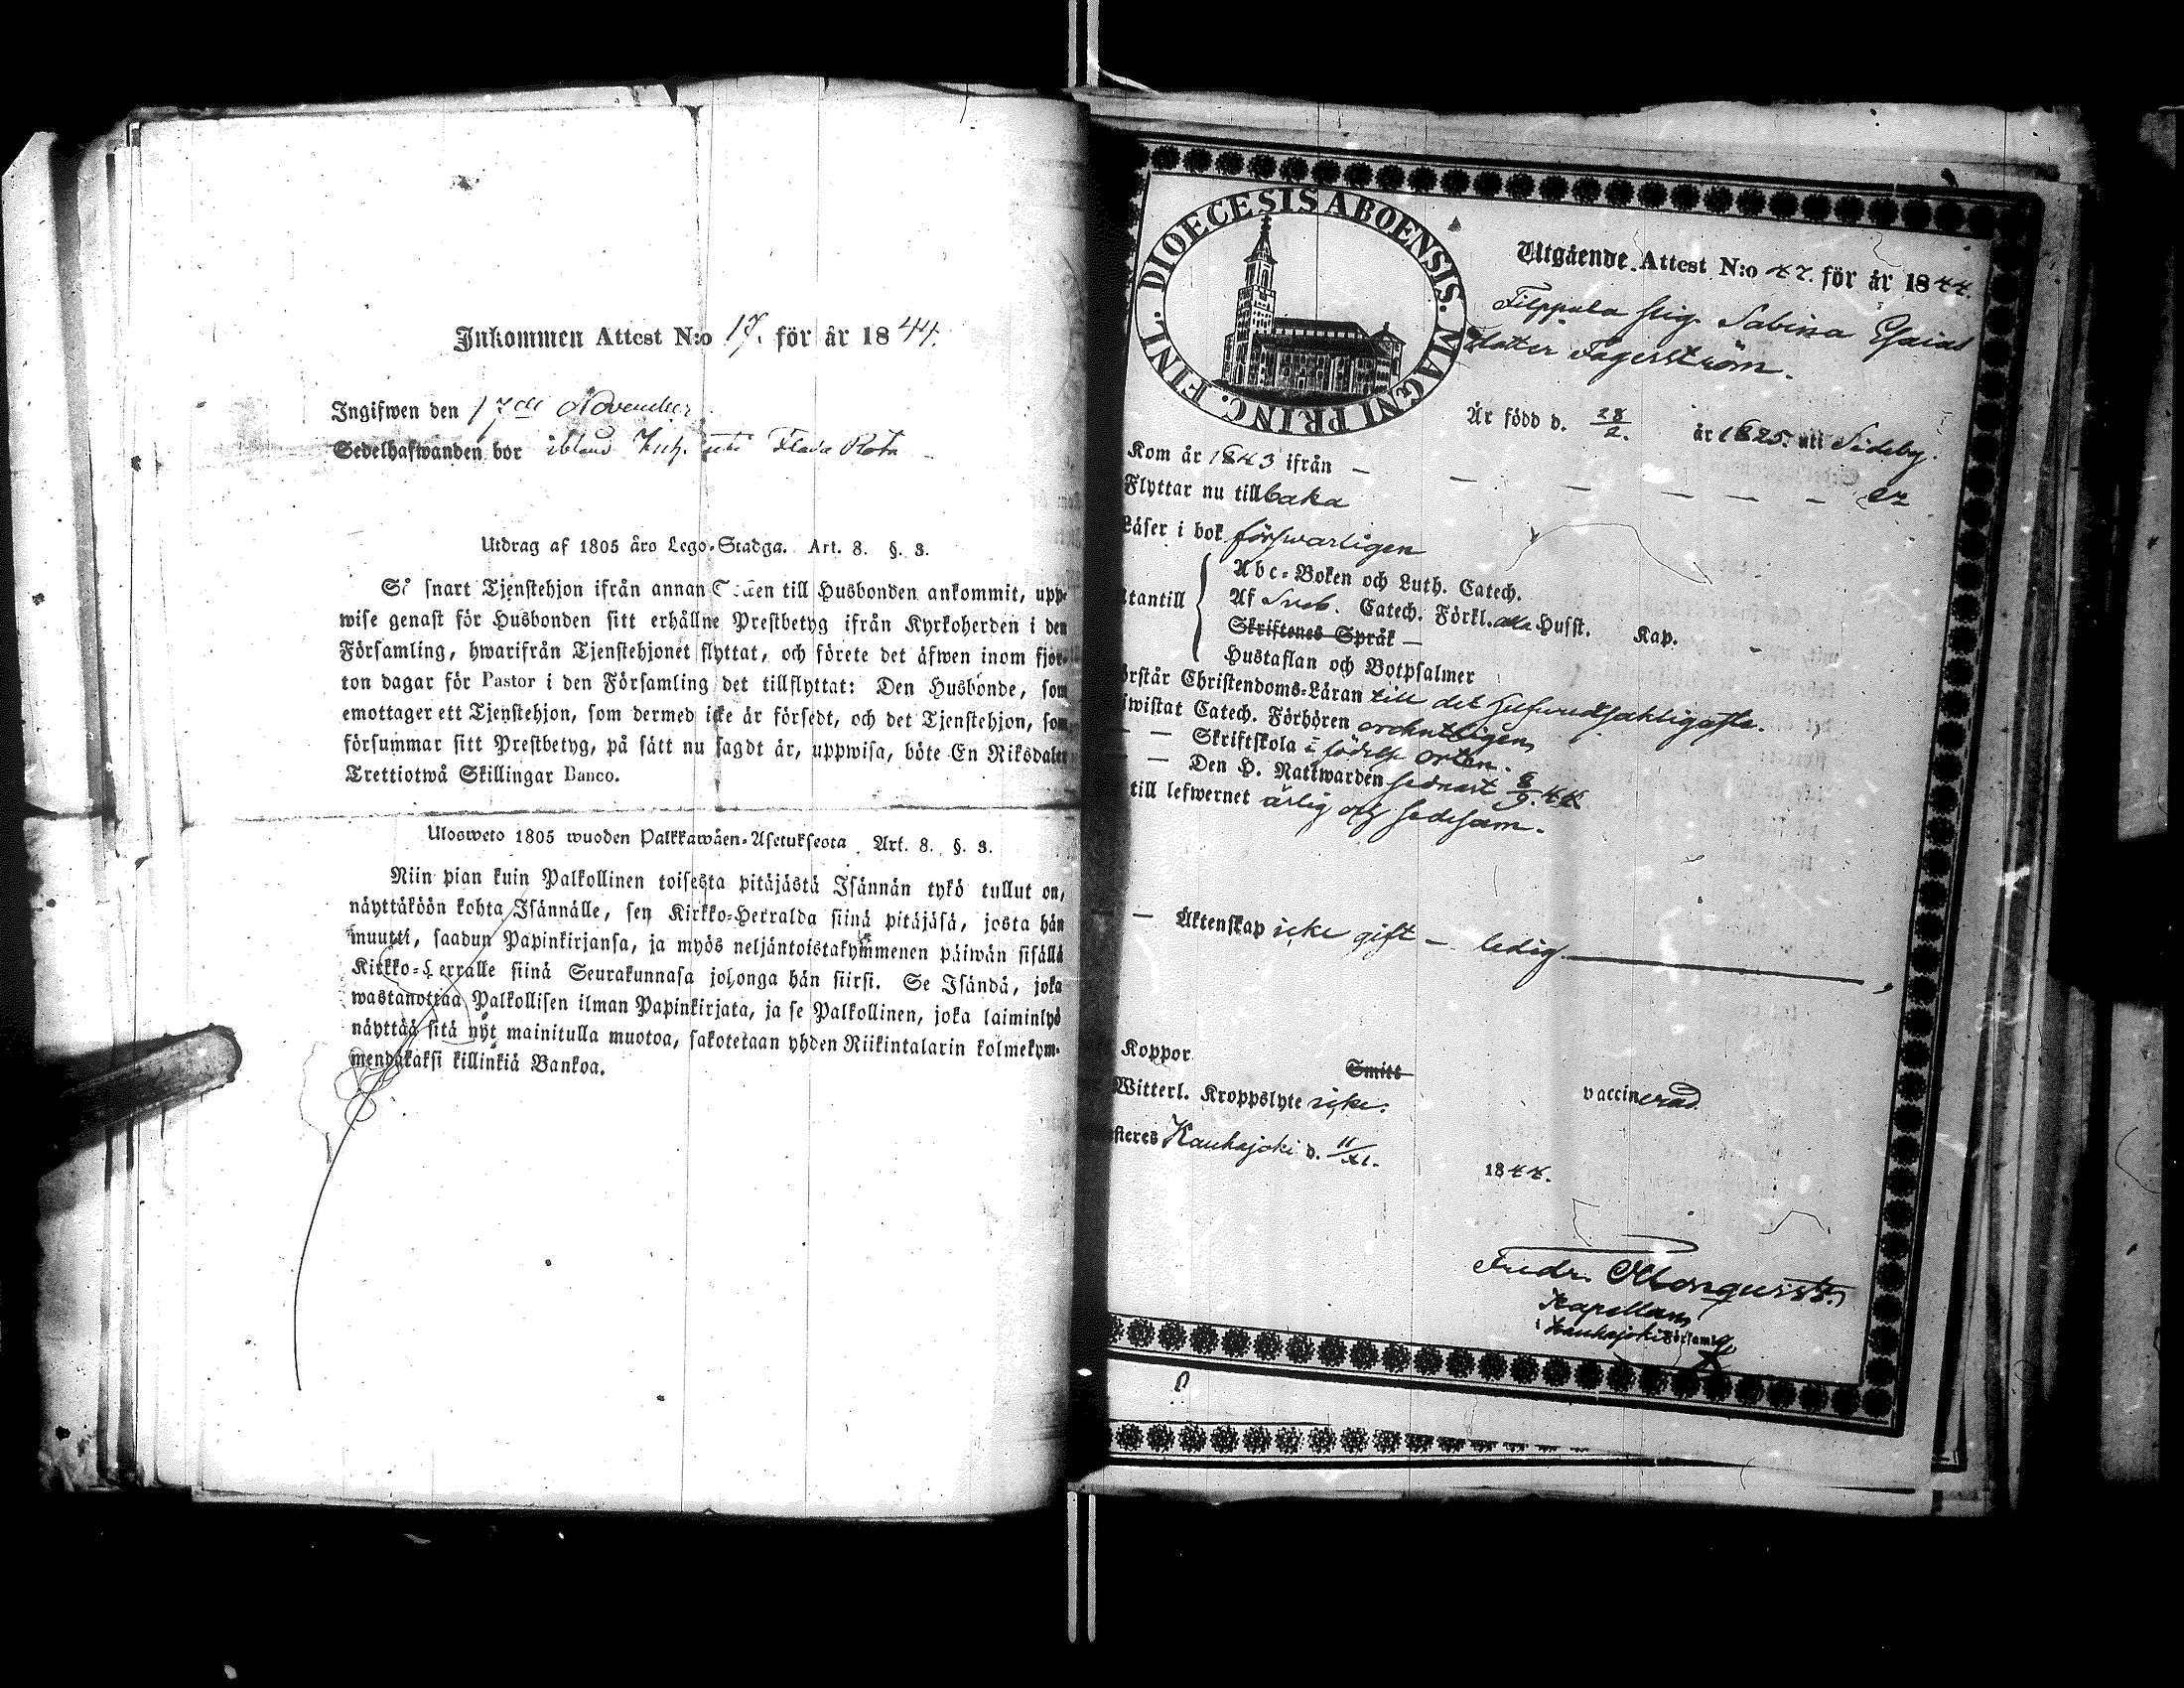 Inkommen Attest N:o 17. för år 1844.
Ingifwen den 17de November
Sedelhafwanden bor ibland Inh. Flada Rota
Utdrag af 1805 års Lego-Stadga. Art. 8. §. 3.
Så snart Tjenstehjon ifrån annan till Husbonden ankommit, upp-
wise genast för Husbonden sitt erhållne Prestbetyg ifrån Kyrkoherden i den
Församling, hwarifrån Tjenstehjonet flyttat, och förete det äfwen inom fjor-
ton dagar för Pastor i den Församling det tillflyttat: Den Husbonde, som
emottager ett Tjenstehjon, som dermed icke är försedt, och det Tjenstehjon, som
försummar sitt Prestbetyg, på sätt nu sagdt är, uppwisa, böte En Riksdaler
Trettiotwå Skillingar Banco.
Ulosweto 1805 wuoden Palkkawäen-Asetuksesta Art. 8. §. 3.
Niin pian kuin Palkollinen toisesta pitäjästä Isännän tykö tullut on,
näyttäköön kohta Isännälle, sen Kirkko-Herralda siinä pitäjäsä, josta hän
muutti, saadun Papinkirjansa, ja myös neljäntoistakymmenen päiwän sisällä
Kirkko-Herralle siinä Seurakunnasa johonga hän siirsi. Se Isändä, joka
wastanottaa Palkollisen ilman Papinkirjata, ja se Palkollinen, joka laiminlyö
näyttää sitä nyt mainitulla muotoa, sakotetaan yhden Riikintalarin kolmekym-
mendäkaksi killinkiä Bankoa.
DIOECESIS ABOENSIS. MAGNI PRINC. FINL.
Utgående Attest N:o 47. för år 1844.
Filppula pig. Sabina Esaias
dotter Fagerström.
Är född d. 28/2. år 1825. uti Sideby.
Kom år 1843 ifrån — — — — — — er
Flyttar nu tillbaka
Läser i bok förswarligen
Abc-Boken och Luth. Catech.
tantill Af Sveb. Catech. Förkl. alla Husst. Kap.
Skriftenes Språk —
Hustaflan och Botpsalmer
örstår Christendoms-Läran till det hufwudsakligaste.
iwistat Catech. Förhören ordentligen
— — Skriftskola i födelse orten.
— — Den H. Nattwarden sednast 8/9. 44
till lefwernet ärlig och sedesam.
— Äktenskap icke gift — ledig.
Koppor Smitt vaccinerad
Witterl. Kroppslyte icke.
steres Kauhajoki d. 11/XI. 1844.
Fredr.
Kapellan
i Kauhajoki Församlg